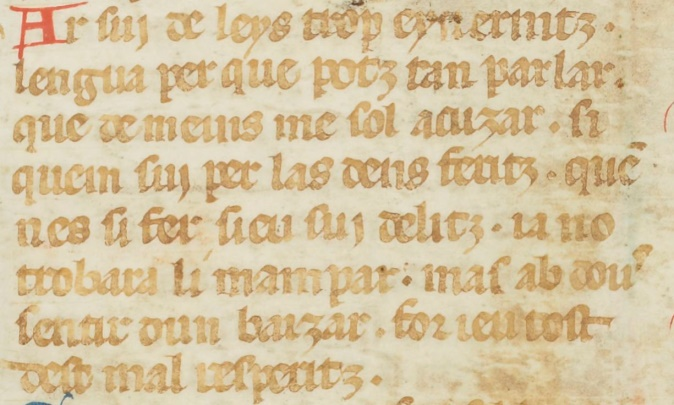 Ar suj de leys trop eynernitz.
lengua per que potz tan parlar.
que de mems me sol acuzar. si
quem suj per las dens feritz. quē
nes si fer sieu suj delitz. ia no
trobara li mampar. mas ab dou
sentir dun baizar. for ieu tost
dest mal iesperitz.